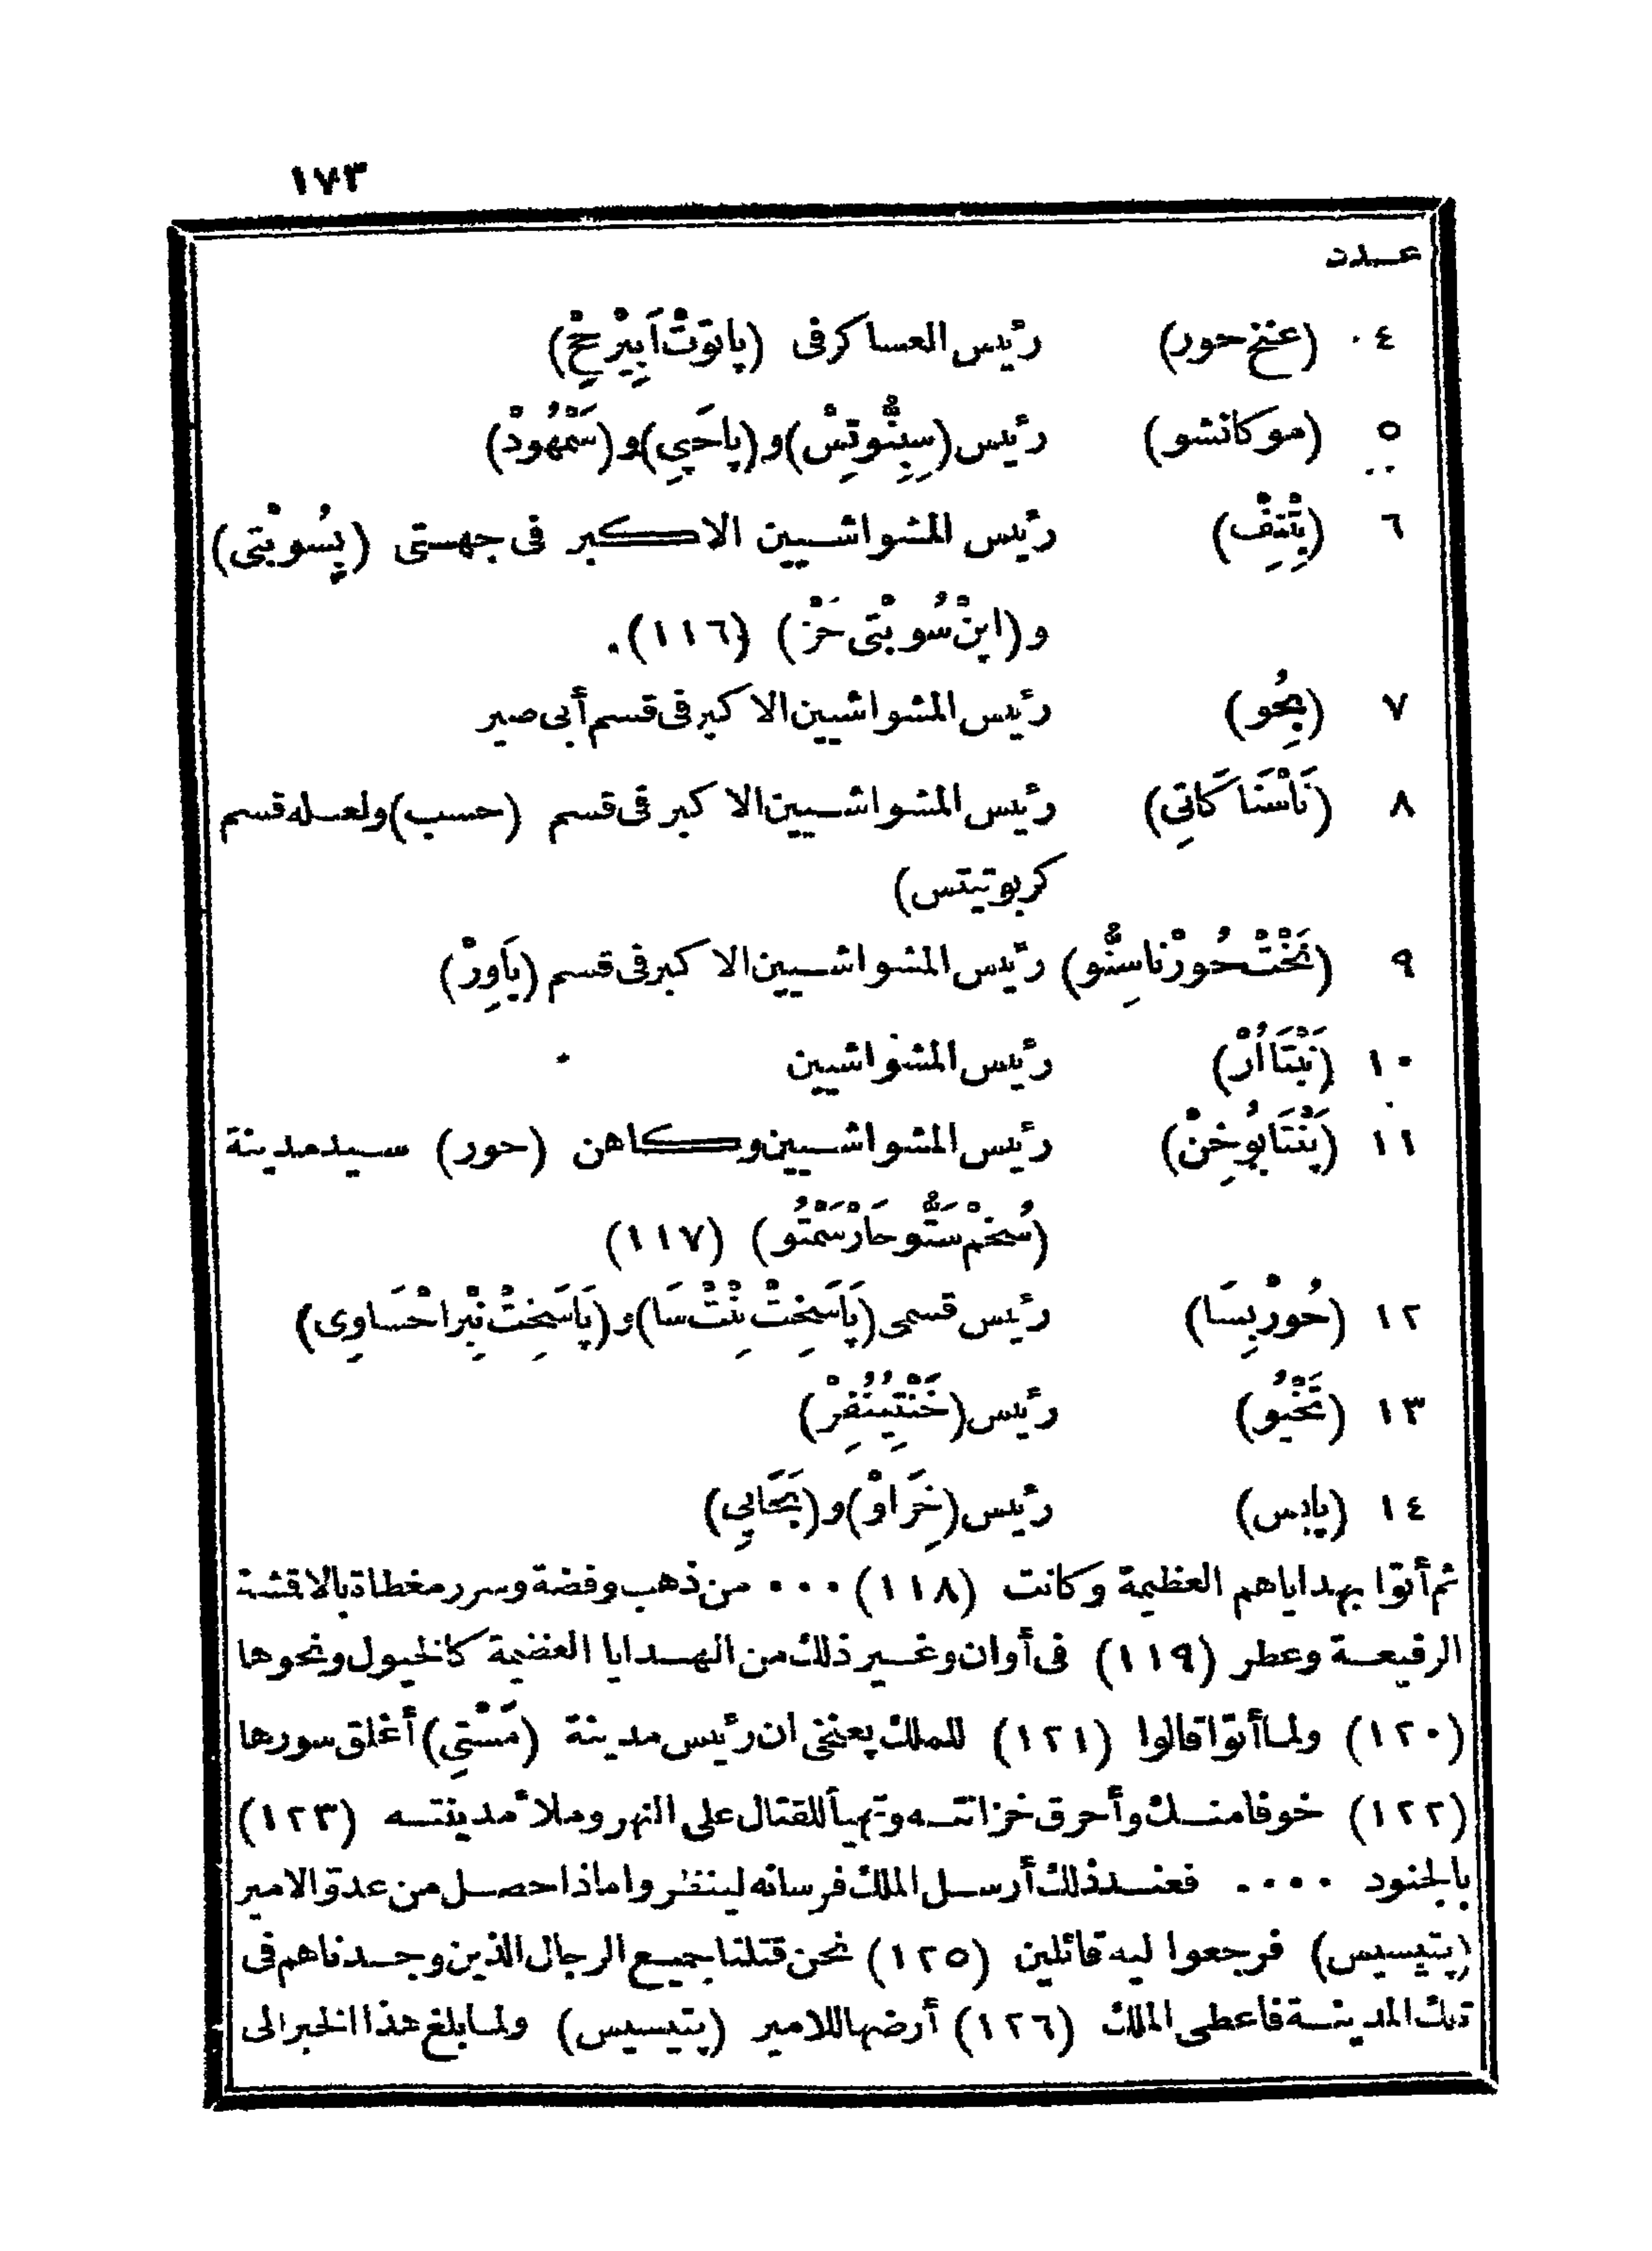 ١٧٣
عدد
٤ (عنخ حور) رئيس العساكر فى (پاتوتْ اَپِيْرحْحْ)
٥ (موكانشو) رئيس (سِبِنُّوتِسْ) و(پاحَپِي) و(سَمْهُودْ)
٦ (پِتْنِفْ) رئيس المشواشيين الاكبر فى جهتى (پِسُوبْتى)
و (اپنْ سُوبْتى حَزْ) (١١٦).
٧ (پِحُو) رئيس المشواشيين الاكبر فى قسم أبى صير
٨ (نَاْسْنَا كَاتِي) رئيس المشواشيين الاكبر فى قسم (حسب) ولعله قسم
كربوتيتس)
٩ (نَخْتْ حُورْ ناسِنُّو) رئيس المشواشيين الاكبر فى قسم (پَاوِرْ)
١٠ (نَبْتَاأُرْ) رئيس المشواشيين
١١ (پَنْتَابُوخِنْ) رئيس المشواشيين وكاهن (حور) سيد مدينة
(سُخمْ سَتُّو حَارْسَمْتُو) (١١٧)
١٢ (حُورْبِسَا) رئيس قسمى (پَاسَخِتْ نِتْتْ سَا) و(پَاسَخِتْ نِبْراحْسَاوِى)
١٣ (تَخْيُو) رئيس (خَنْتِينُفِرْ)
١٤ (پابس) رئيس (خِرَاوْ) و(بَحَابِي)
ثم أتوا بهداياهم العظيمة وكانت (١١٨) ... من ذهب وفضة وسرر مغطاة بالاقشة
الرفيعة وعطر (١١٩) فى أوان وغير ذلك من الهدايا العظيمة كالخيول ونحوها
(١٢٠) ولما أتوا قالوا (١٢١) للملك پعنخى ان رئيس مدينة (مَسْتِي) أغلق سورها
(١٢٢) خوفا منك وأحرق خزانته وتهيأ للقتال على النهر وملأ مدينته (١٢٣)
بالجنود .... فعند ذلك أرسل الملك فرسانه لينظروا ماذا حصل من عدو الامير
(پتيسيس) فرجعوا ليه قائلين (١٢٥) نحن قتلنا جميع الرجال الذين وجدناهم فى
تلك المدينة فاعطى الملك (١٢٦) أرضها للامير (پتيسيس) ولما بلغ هذا الخبر الى